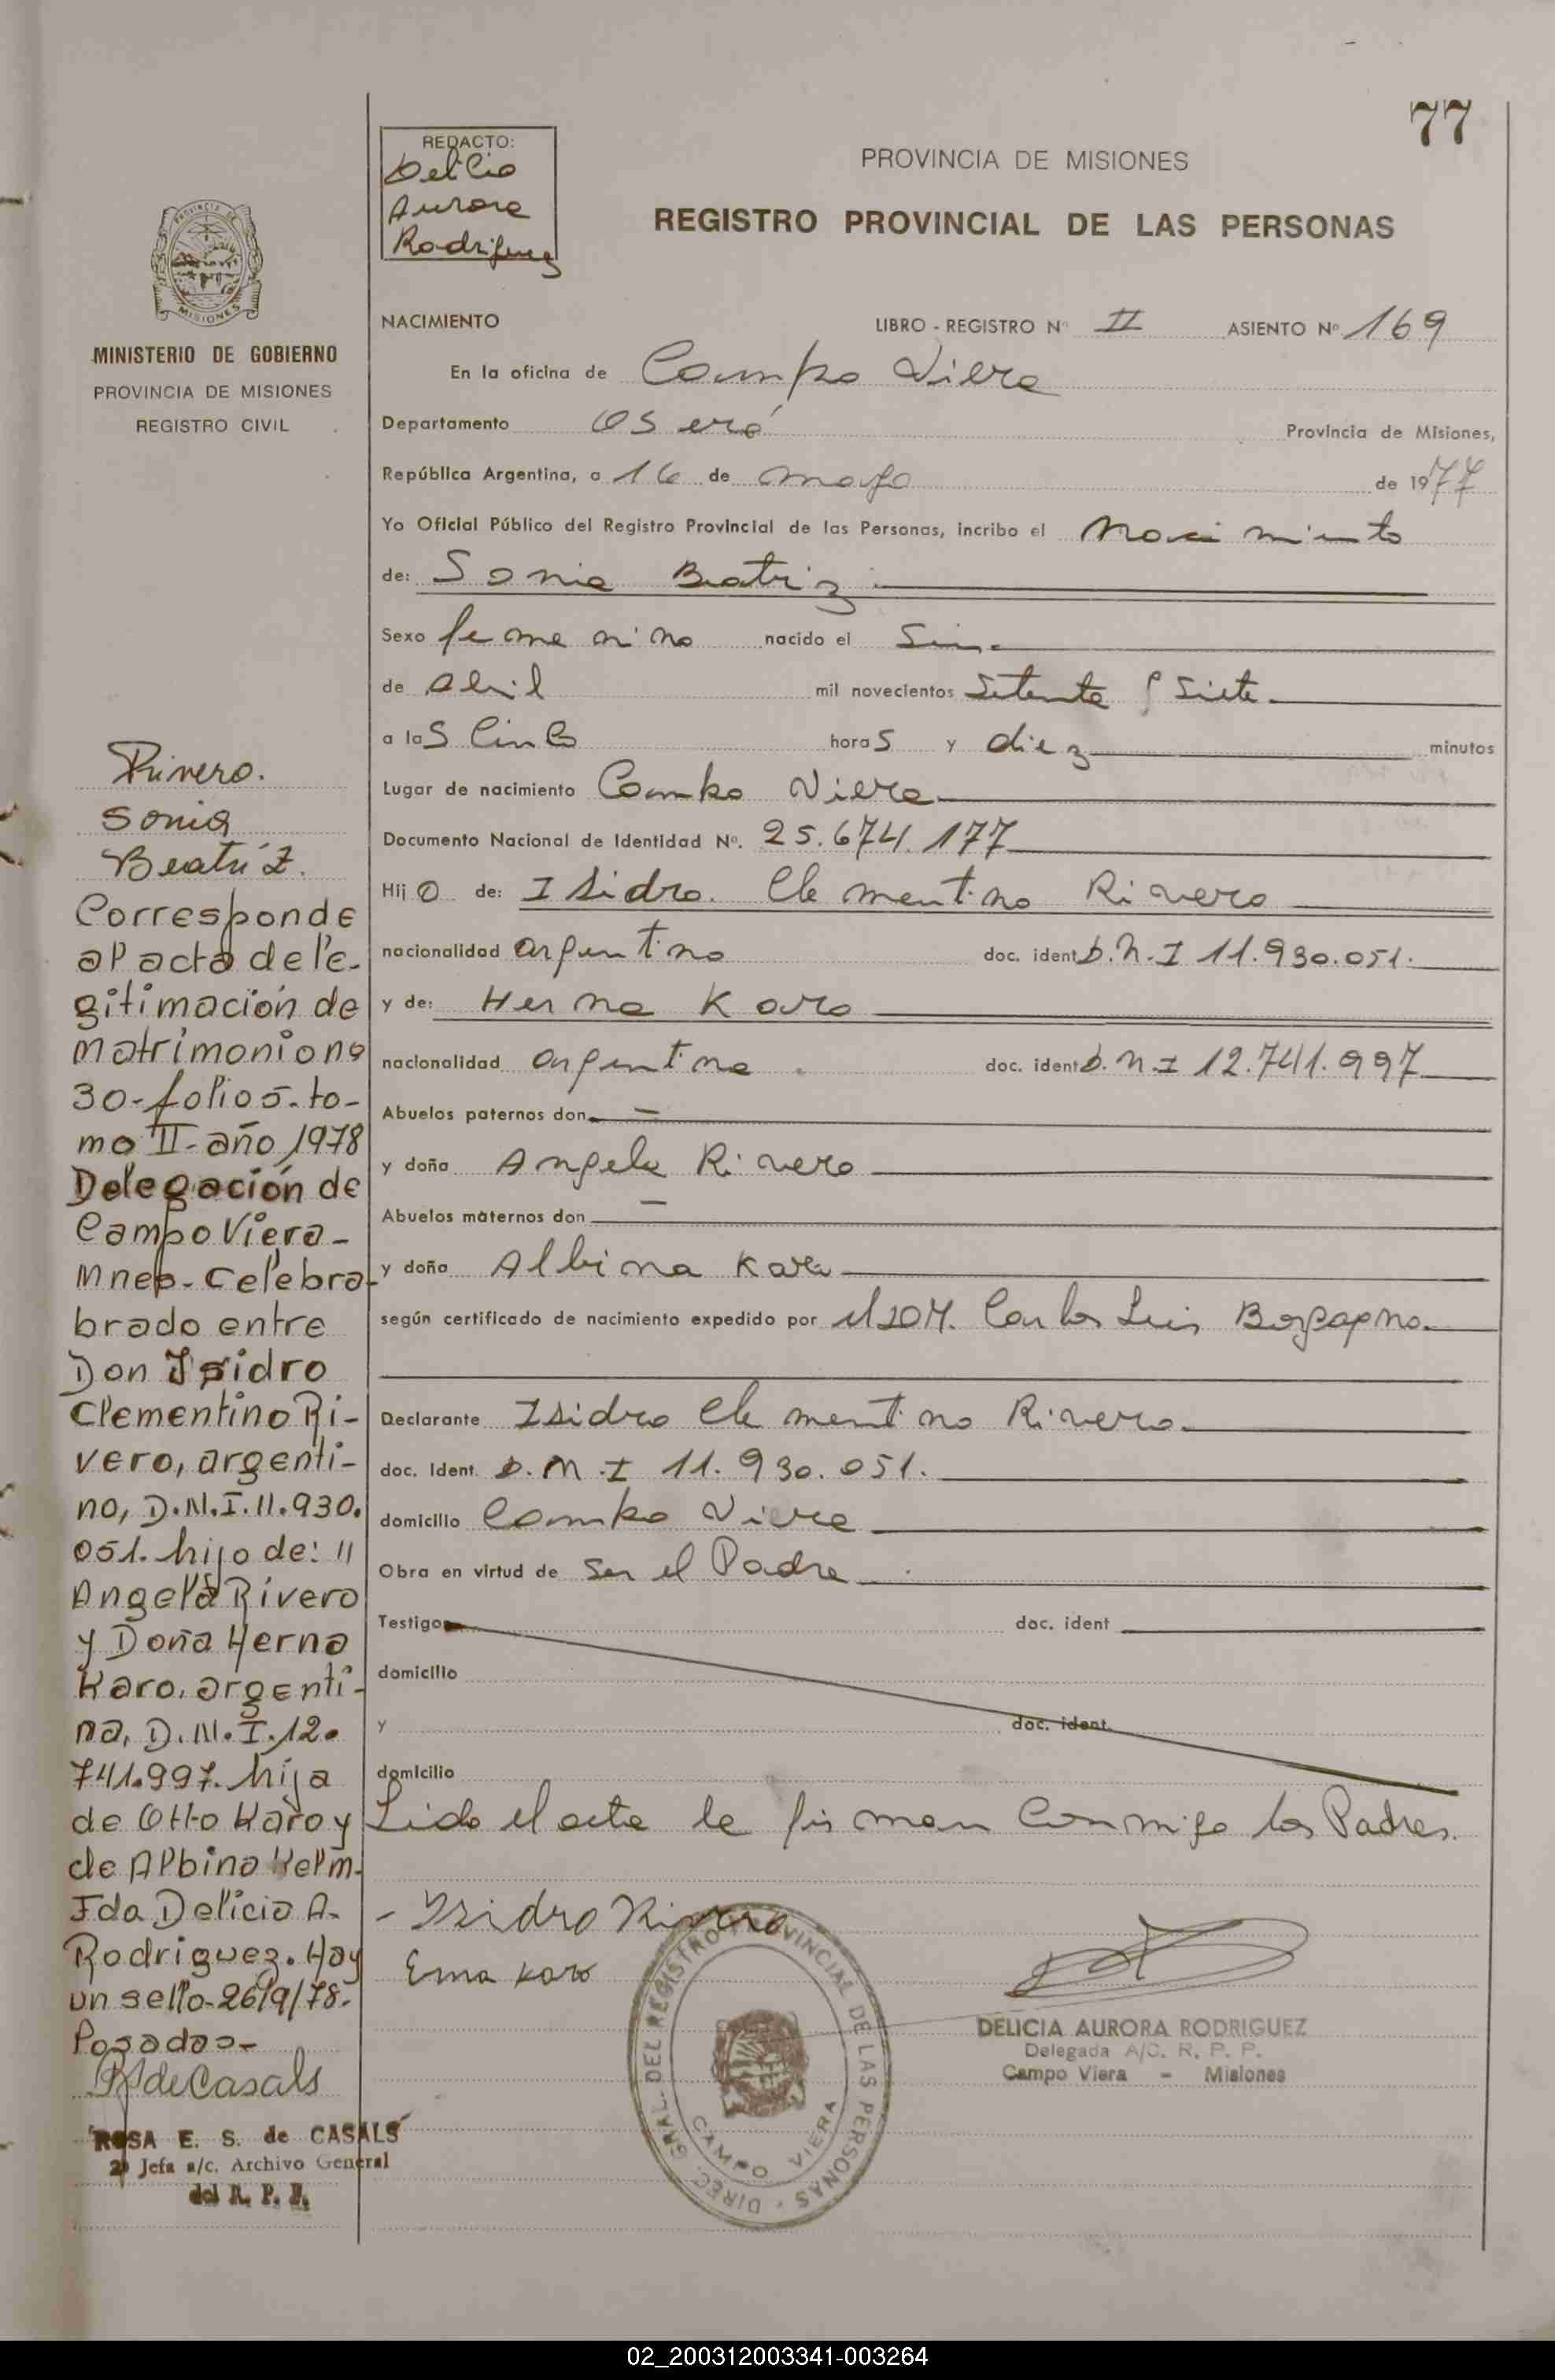 77
REDACTO:
Delicia
Aurora
Rodriguez
PROVINCIA DE MISIONES
REGISTRO PROVINCIAL DE LAS PERSONAS
PROVINCIA DE
MISIONES
MINISTERIO DE GOBIERNO
PROVINCIA DE MISIONES
REGISTRO CIVIL
NACIMIENTO LIBRO - REGISTRO Nº II ASIENTO Nº 169
En la oficina de Campo Viera
Departamento Oberá Provincia de Misiones,
República Argentina, a 16 de mayo de 1977
Yo Oficial Público del Registro Provincial de las Personas, incribo el Nacimiento
de: Sonia Beatriz
Sexo femenino nacido el
de abril mil novecientos Setenta y Siete
a las Cinco horas y diez minutos
Lugar de nacimiento Campo Viera
Documento Nacional de Identidad Nº. 25.674.177
Hijo de: Isidro Clementino Rivero
nacionalidad argentino doc. ident D.N.I 11.930.051.
y de: Herna Karo
nacionalidad argentina doc. ident D.N.I 12.741.997
Abuelos paternos don —
y doña Angela Rivero
Abuelos maternos don —
y doña Albina Karo
según certificado de nacimiento expedido por el Carlos Luis
Declarante Isidro Clementino Rivero
doc. Ident. D.N.I 11.930.051.
domicilio Campo Viera
Obra en virtud de Ser el Padre
Testigos doc. ident
domicilio
y doc. ident.
domicilio
Lido el acta la firman Conmigo los Padres.
- Isidro Rivero
Erna Karo
DIREC. GRAL. DEL REGISTRO PROVINCIAL DE LAS PERSONAS
CAMPO VIERA
DELICIA AURORA RODRIGUEZ
Delegada A/C. R. P. P.
Campo Viera - Misiones
Rivero.
Sonia
Beatríz.
Corresponde
al acta de le-
gitimación de
matrimonio nº
30-folio 5-to-
mo II-año 1978
Delegación de
Campo Viera-
Mnes-Celebra-
brado entre
Don Isidro
Clementino Ri-
vero, argenti-
no, D.N.I.11.930.
051. hijo de: "
Angela Rivero
y Doña Herna
Karo, argenti-
na, D.N.I.12.
741.997. hija
de Otto Karo y
de Albina Kelm.
Fda Delicia A.
Rodriguez. Hay
un sello-26/9/78.
Posadas-
RSdeCasals
ROSA E. S. de CASALS
2ª Jefa a/c. Archivo General
del R. P. P.
02_200312003341-003264